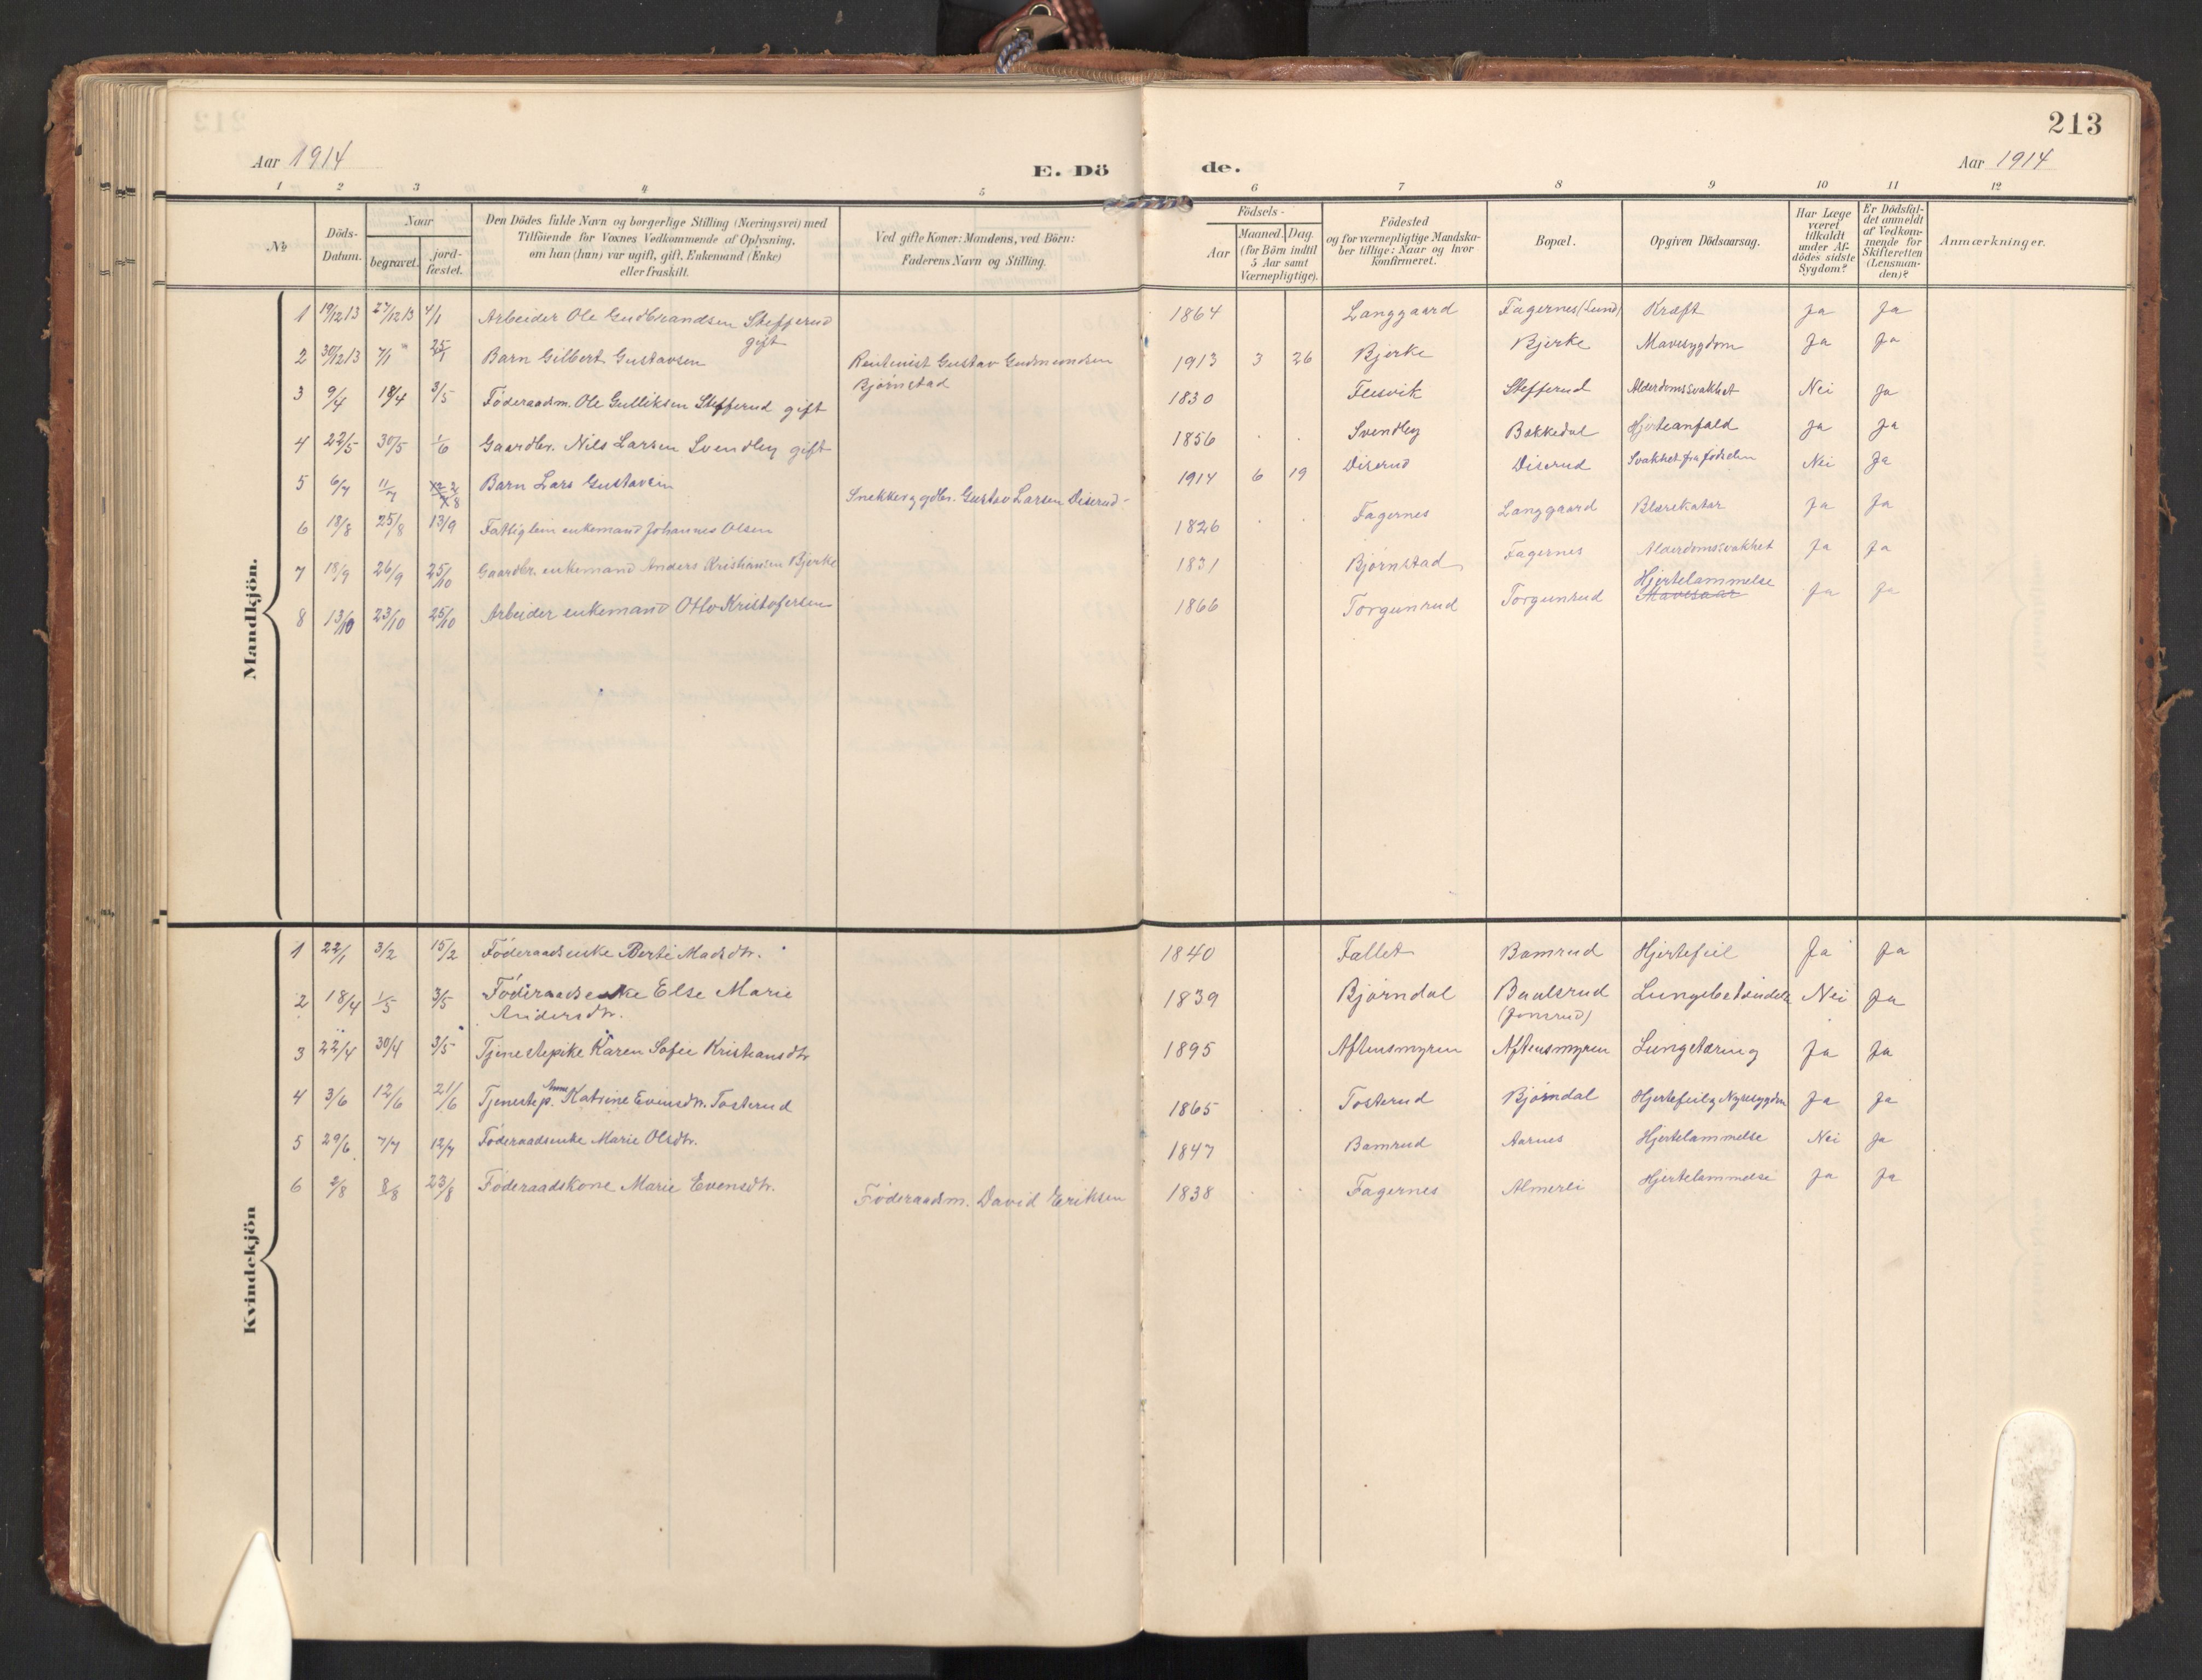 213
Aar 1914
E. Dö de.
Aar 1914
1 2 3 4 5 6 7 8 9 10 11 12
No
Döds-Datum.
Naar
begravet.
jord-fæstet.
Den Dödes fulde Navn og borgerlige Stilling (Næringsvei) med
Tilföiende for Voxnes Vedkommende af Oplysning,
om han (hun) var ugift, gift, Enkemand (Enke)
eller fraskilt.
Ved gifte Koner: Mandens, ved Börn:
Faderens Navn og Stilling.
Födsels-
Aar
Maaned. Dag.
(for Börn indtil
5 Aar samt
Værnepligtige).
Födested
og for værnepligtige Mandska-
ber tillige: Naar og hvor
konfirmeret.
Bopæl.
Opgiven Dödsaarsag.
Har Læge
været
tilkaldt
under Af-
dödes sidste
Sygdom?
Er Dödsfal-
det anmeldt
af Vedkom-
mende for
Skifteretten
(Lensman-
den)?
Anmærkninger.
Mandkjön.
1 19/12 13 27/12 13 4/1 Arbeider Ole Gudbrandsen Stefferud gift 1864 Langgaard Fagernes (Lund) Kræft Ja Ja
2 30/12 13 7/1 25/1 Barn Gilbert Gustavsen Rentenist Gustav Gudmundsen Bjørnstad 1913 3 26 Bjerke Bjerke Mavesygdom Ja Ja
3 9/4 18/4 3/5 Føderaadsm. Ole Gulliksen Stefferud gift 1830 Flesvik Stefferud Alderdomssvakhet Nei Ja
4 22/5 30/5 1/6 Gaardbr. Nils Larsen Svendby gift 1856 Svendby Bakkedal Hjerteanfald Ja Ja
5 6/7 11/7 2/8 Barn Lars Gustavsen Snekker og gdbr. Gustav Larsen Diserud 1914 6 19 Diserud Diserud Svakhet fra fødselen Nei Ja
6 18/8 25/8 13/9 Fattiglem enkemand Johannes Olsen 1826 Fagernes Langgaard Blærekatar Ja Ja
7 18/9 26/9 25/10 Gaardbr. enkemand Anders Kristiansen Bjerke 1831 Bjørnstad Fagernes Alderdomssvakhet Ja Ja
8 13/10 23/10 25/10 Arbeider enkemand Otto Kristofersen 1866 Torgunrud Torgunrud Hjertelammelse Mavesaar Ja Ja
Kvindekjön
1 22/1 3/2 15/2 Føderaadsenke Berte Madsdtr. 1840 Fallet Bamrud Hjertefeil Ja Ja
2 18/4 1/5 3/5 Føderaadsenke Else Marie Andersdtr. 1839 Bjørndal Baulsrud (Jonsrud) Lungebetændelse Nei Ja
3 22/4 30/4 3/5 Tjenestepike Karen Sofie Kristiansdtr 1895 Aftensmyren Aftensmyren Lungetæring Ja Ja
4 3/6 12/6 21/6 Tjenestep. Anne Katrine Evensdtr. Tosterud 1865 Tosterud Bjørndal Hjertefeil og Nyresygdom Ja Ja
5 29/6 7/7 12/7 Føderaadsenke Marie Olsdtr. 1847 Bamrud Aarnes Hjertelammelse Nei Ja
6 2/8 8/8 23/8 Føderaadskone Marie Evensdtr. Føderaadsm. David Eriksen 1838 Fagernes Almerli Hjertelammelse Ja Ja